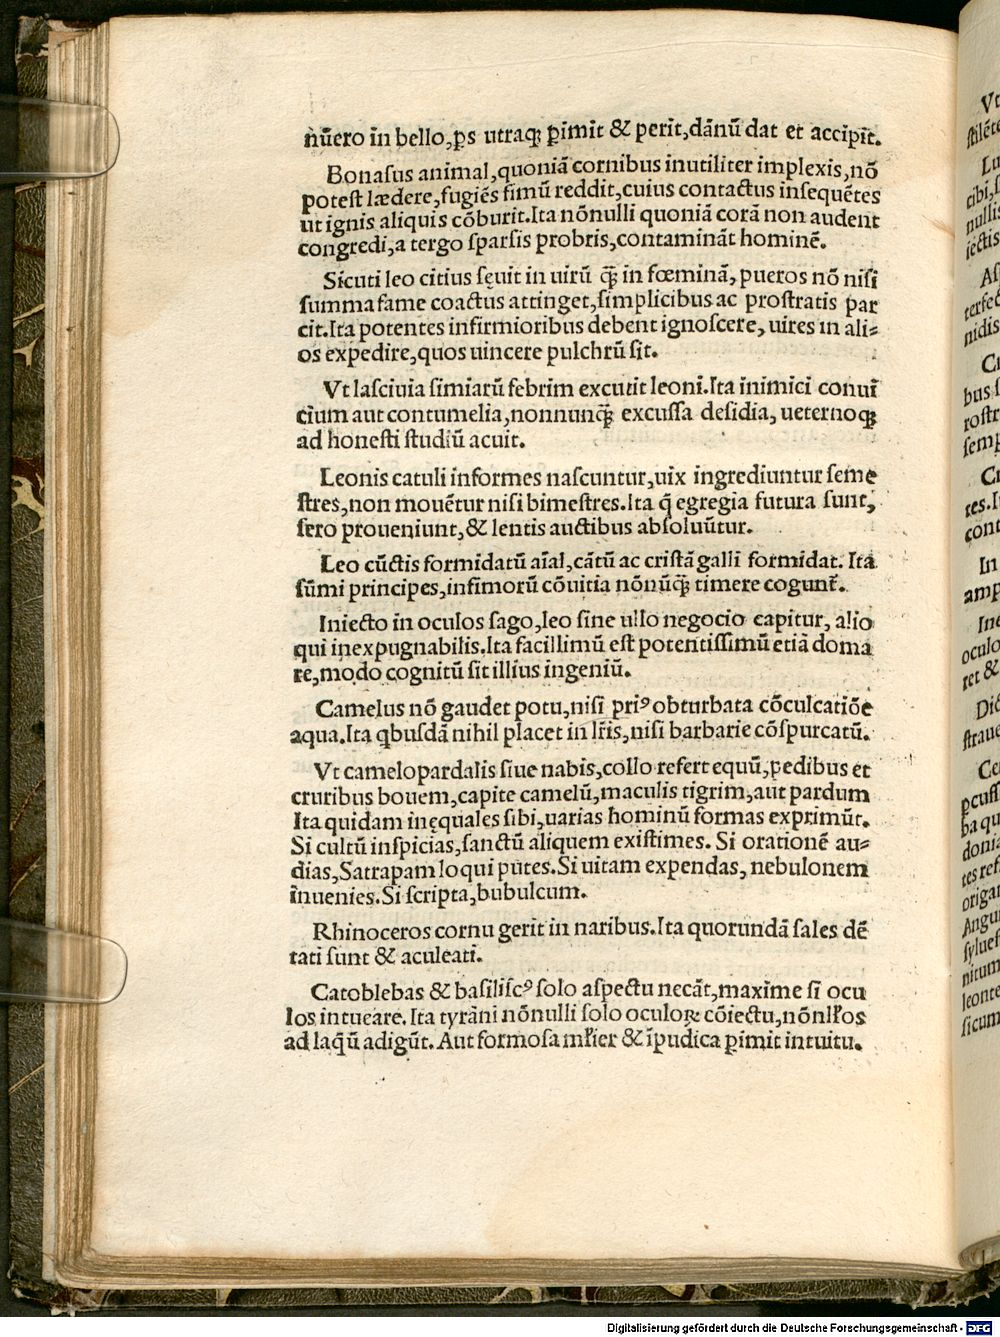 nũero in bello, ꝑs utraq; ꝑimit & perit, dãnũ dat et accipit.
Bonasus animal, quoniã cornibus inutiliter implexis, nõ
potest lædere, fugiẽs fimũ reddit, cuius contactus insequẽtes
ut ignis aliquis cõburit. Ita nõnulli quoniã corã non audent
congredi, a tergo sparsis probris, contaminãt hominẽ.
Sicuti leo citius sęuit in uirũ q̃; in fœminã, pueros nõ nisi
summa fame coactus attinget, simplicibus ac prostratis par
cit. Ita potentes infirmioribus debent ignoscere, uires in ali=
os expedire, quos uincere pulchrũ sit.
Vt lasciuia simiarũ febrim excutit leoni. Ita inimici conuĩ
cium aut contumelia, nonnunq̃; excussa desidia, ueternoq;
ad honesti studiũ acuit.
Leonis catuli informes nascuntur, uix ingrediuntur seme
stres, non mouẽtur nisi bimestres. Ita q̃ egregia futura sunt,
sero proueniunt, & lentis auctibus absoluũtur.
Leo cũctis formidatũ aĩal, cãtũ ac cristã galli formidat. Ita
sũmi principes, infimorũ cõuitia nõnũq̃; timere cogunt̃.
Iniecto in oculos sago, leo sine ullo negocio capitur, alio
qui inexpugnabilis. Ita facillimũ est potentissimũ etiã doma
re, modo cognitũ sit illius ingeniũ.
Camelus nõ gaudet potu, nisi priꝰ obturbata cõculcatiõe
aqua. Ita qbusdã nihil placet in lr̃is, nisi barbarie cõspurcatũ.
Vt camelopardalis siue nabis, collo refert equũ, pedibus et
cruribus bouem, capite camelũ, maculis tigrim, aut pardum
Ita quidam inęquales sibi, uarias hominũ formas exprimũt.
Si cultũ inspicias, sanctũ aliquem existimes. Si orationẽ au=
dias, Satrapam loqui putes. Si uitam expendas, nebulonem
inuenies. Si scripta, bubulcum.
Rhinoceros cornu gerit in naribus. Ita quorundã sales dẽ
tati sunt & aculeati.
Catoblebas & basiliscꝰ solo aspectu necãt, maxime si ocu
los intueare. Ita tyrãni nõnulli solo oculoꝝ cõiectu, nõnłłos
ad laq̃ũ adigũt. Aut formosa młier & ĩpudica ꝑimit intuitu.
Digitalisierung gefördert durch die Deutsche Forschungsgemeinschaft - DFG